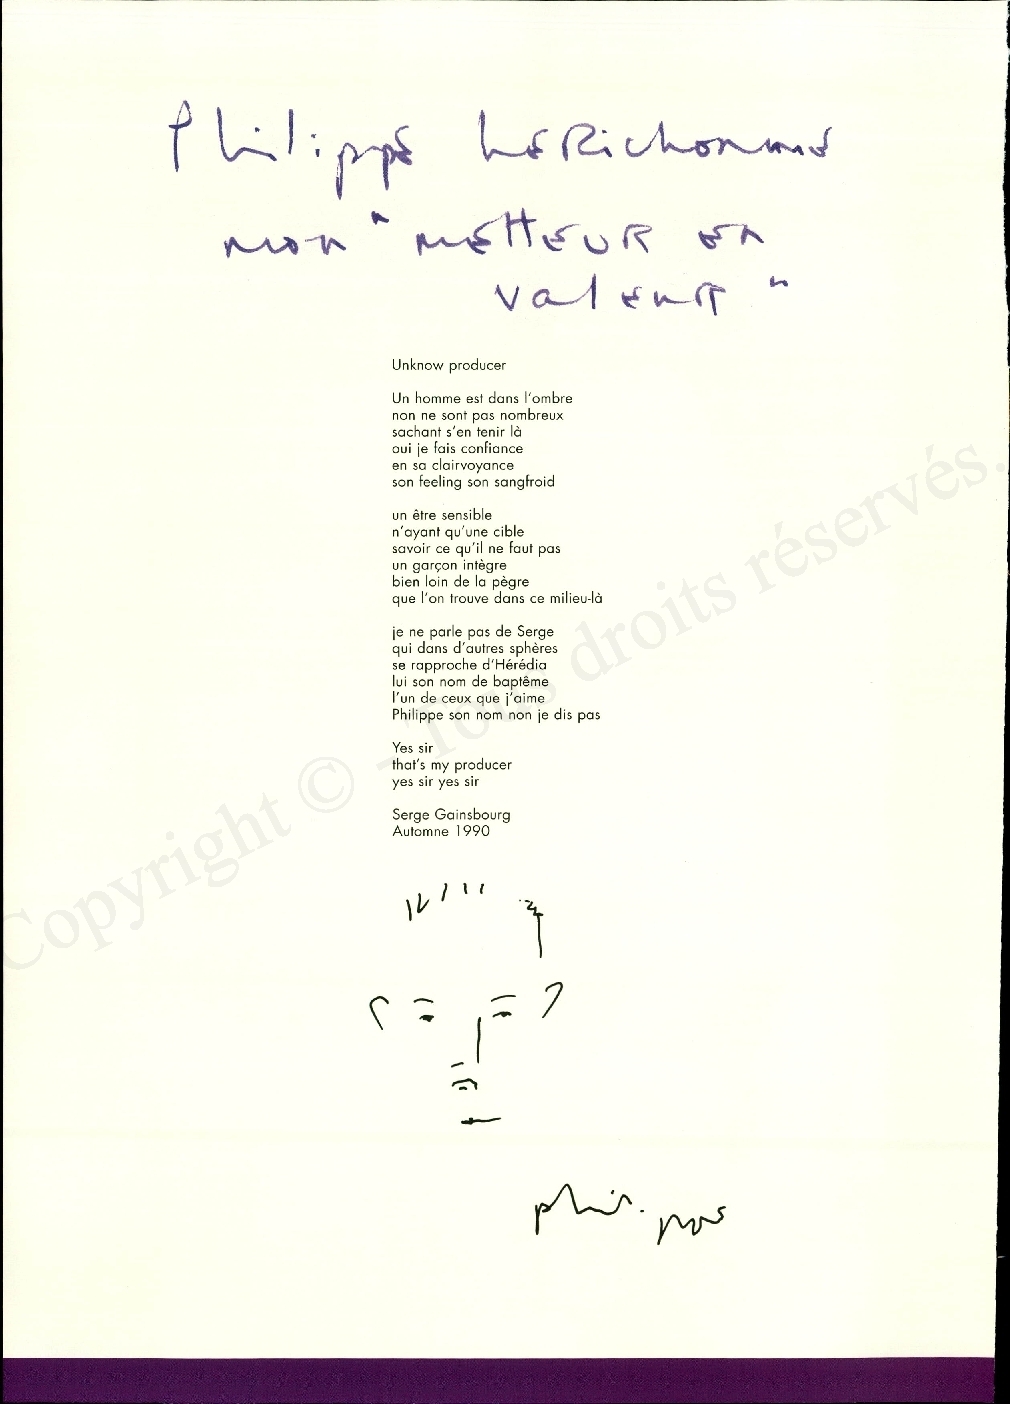 Philippe Lerichomme
mon "metteur en
valeur"
Unknow producer
Un homme est dans l'ombre
non ne sont pas nombreux
sachant s'en tenir là
oui je fais confiance
en sa clairvoyance
son feeling son sangfroid
un être sensible
n'ayant qu'une cible
savoir ce qu'il ne faut pas
un garçon intègre
bien loin de la pègre
que l'on trouve dans ce milieu-là
je ne parle pas de Serge
qui dans d'autres sphères
se rapproche d'Hérédia
lui son nom de baptême
l'un de ceux que j'aime
Philippe son nom non je dis pas
Yes sir
that's my producer
yes sir yes sir
Serge Gainsbourg
Automne 1990
Copyright © - Tous droits réservés.